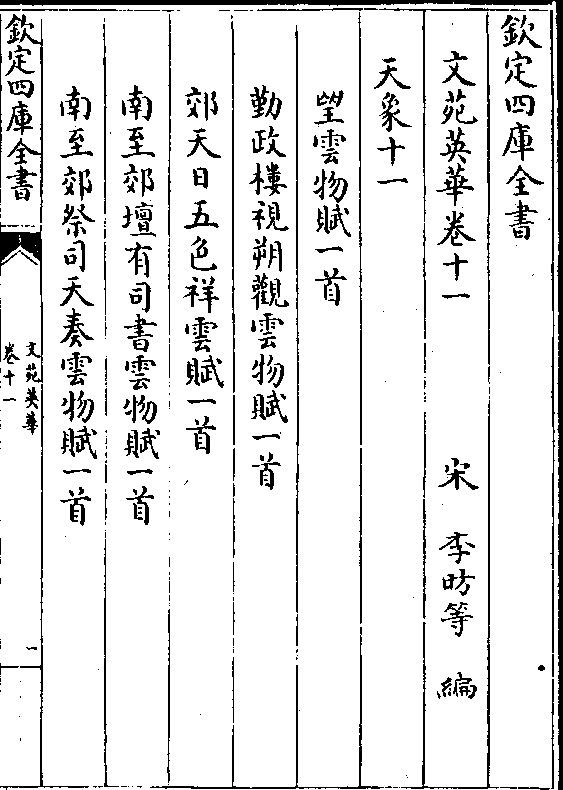 欽定四庫全書
文苑英華卷十一 宋 李昉等 編
天象十一
望雲物賦一首
勤政樓視朔觀雲物賦一首
郊天日五色祥雲賦一首
南至郊壇有司書雲物賦一首
南至郊祭司天奏雲物賦一首
欽定四庫全書
文苑英華
卷十一
一